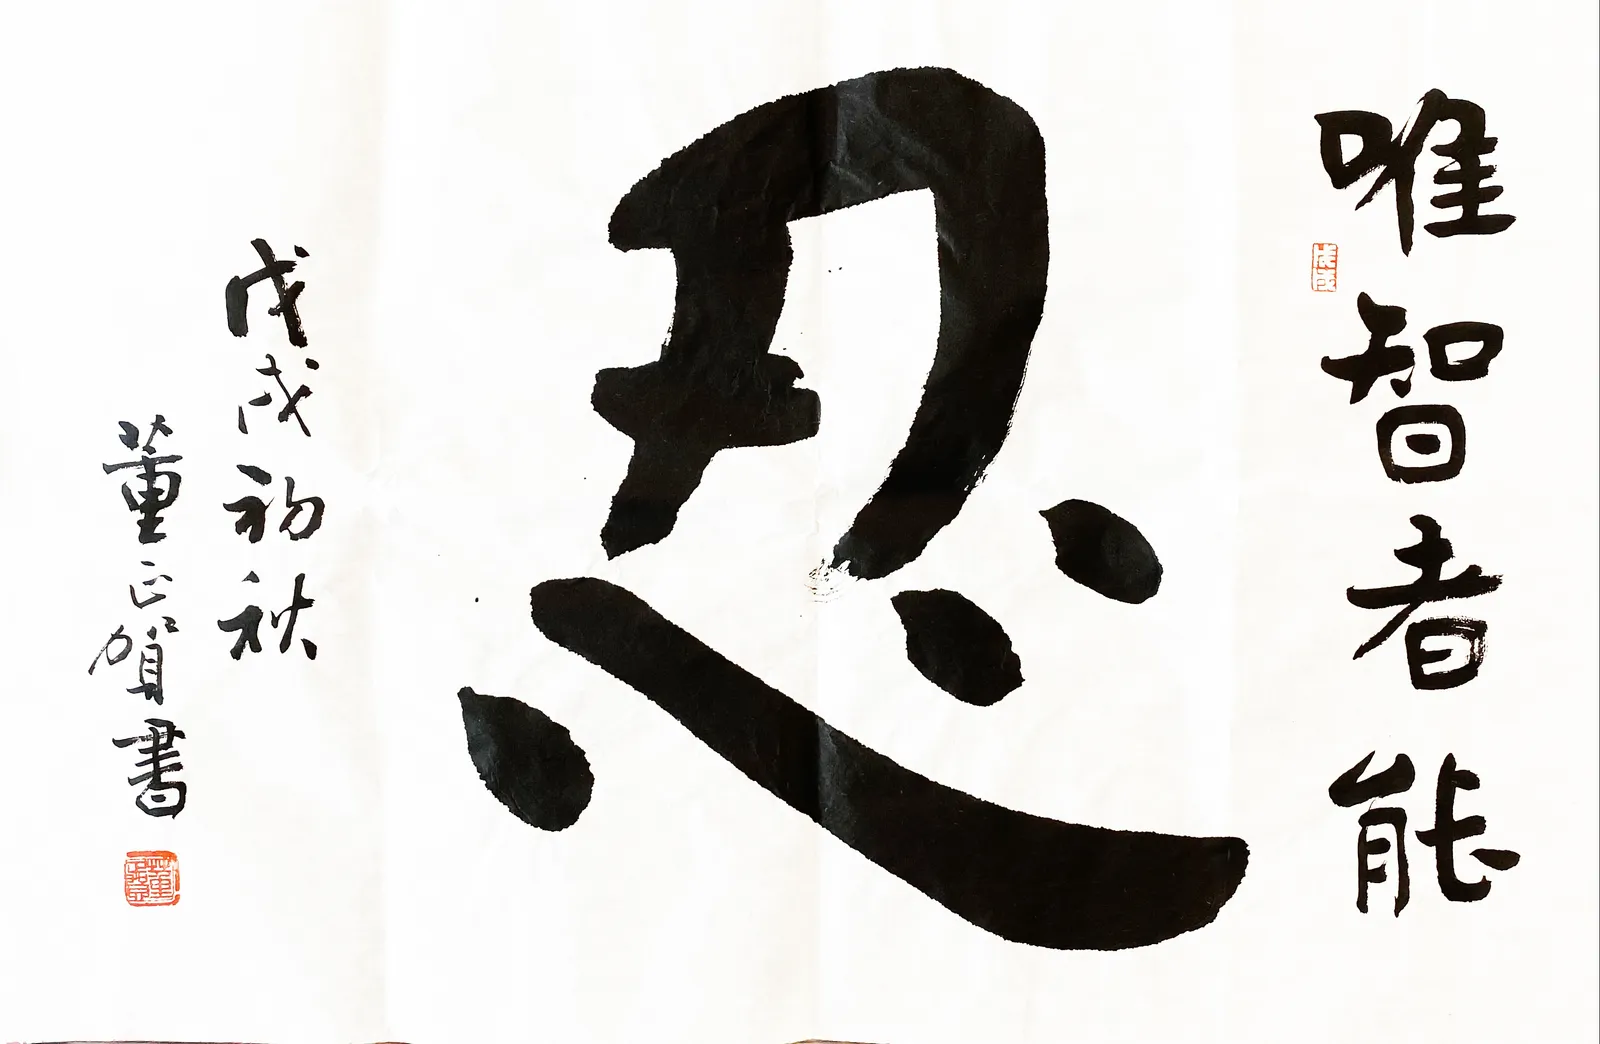 唯智者能
忍
戊戌初秋
董正賀書